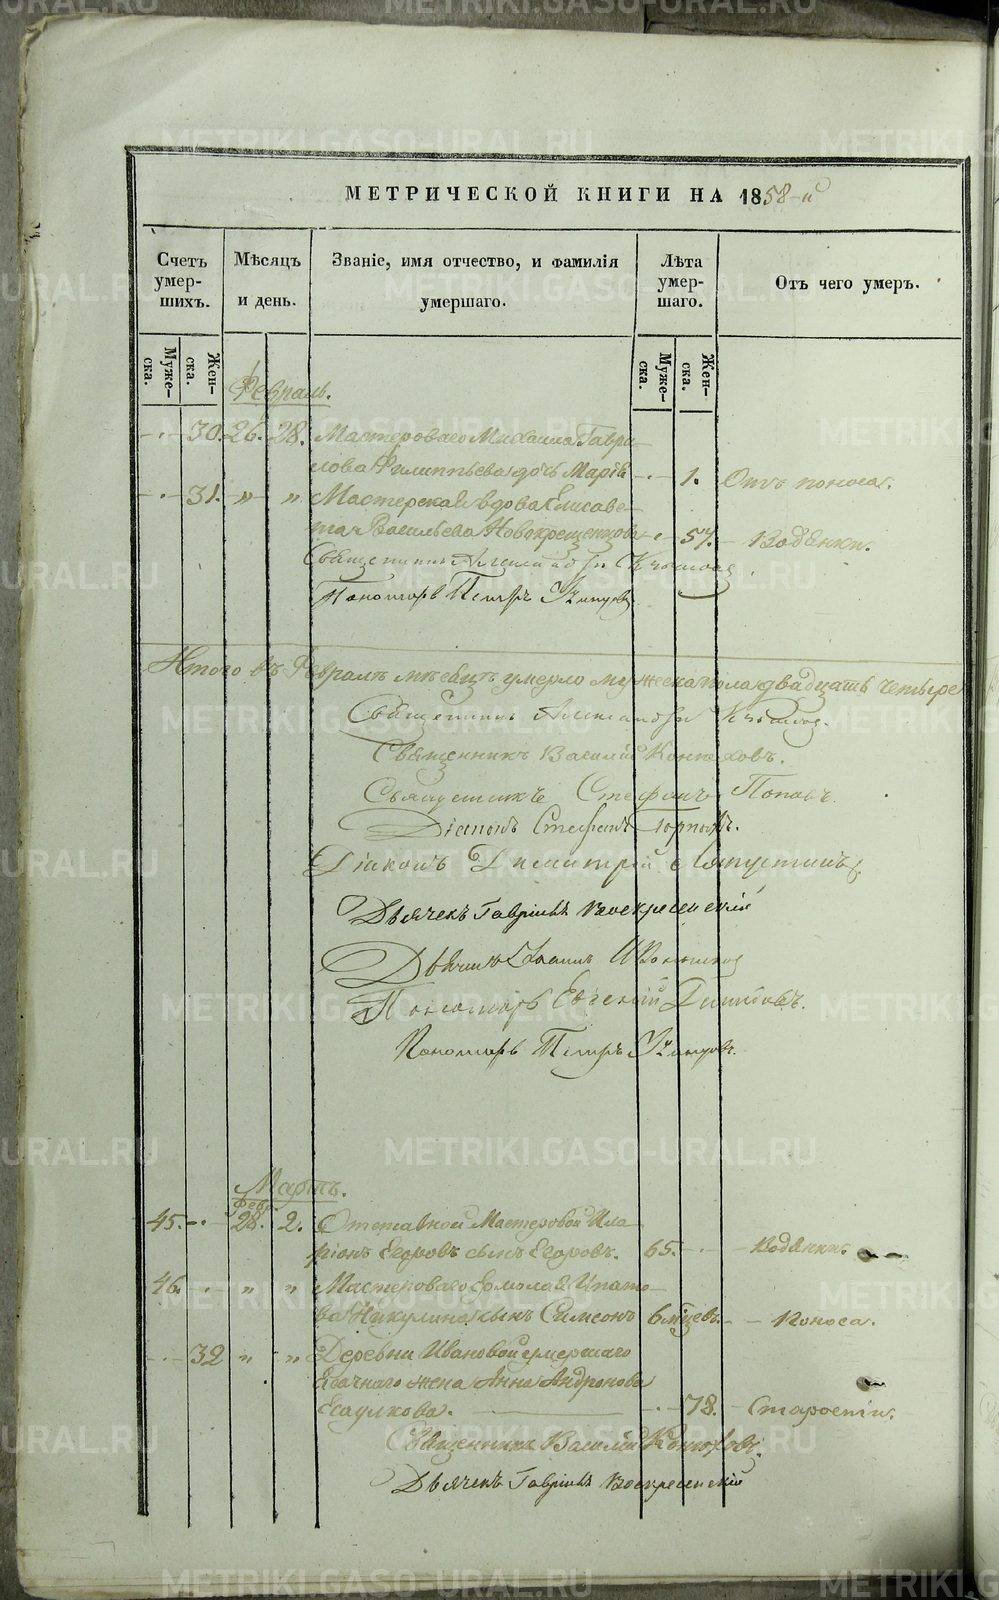 МЕТРИЧЕСКОЙ КНИГИ НА 1858-й
Счетъ умер- шихъ.
Мѣсяцъ и день.
Званіе, имя отчество, и фамилія умершаго.
Лѣта умер- шаго.
Отъ чего умеръ.
Муже- ска.
Жен- ска.
Муже- ска.
Жен- ска.
Февраль.
30. 26. 28. Мастероваго Михаила Гаври-
лова Филиппьева дочь Марія 1. Отъ поноса.
31. " " Мастерская вдова Елисаве-
та Васильева Новокрещенова 57. Водянки.
Священникъ Александръ
Пономарь Петръ
Итого въ Февралѣ мѣсяцѣ умерло мужеска пола двадцать четыре
Священникъ Александръ
Священникъ Василій Конюховъ.
Священникъ Стефанъ Поповъ.
Діаконъ Стефанъ
Діаконъ Димитрій
Дьячекъ Гавріилъ Воскресенскій
Дьячекъ Іоаннъ
Пономарь Евгеній
Пономарь Петръ
Мартъ.
Фев.
45. 28. 2. Отставной Мастеровой Ила-
ріонъ Егоровъ сынъ Егоровъ. 65. Водянки.
46. " " Мастероваго Ермолая Ипато-
ва Никулина сынъ Симеонъ 6 мѣцев. Поноса.
32 " " Деревни Ивановой умершаго
Ясачнаго жена Анна Андронова
Есаулкова. 78. Старости.
Священникъ Василій Конюховъ.
Дьячекъ Гавріилъ Воскресенскій
METRIKI.GASO-URAL.RU